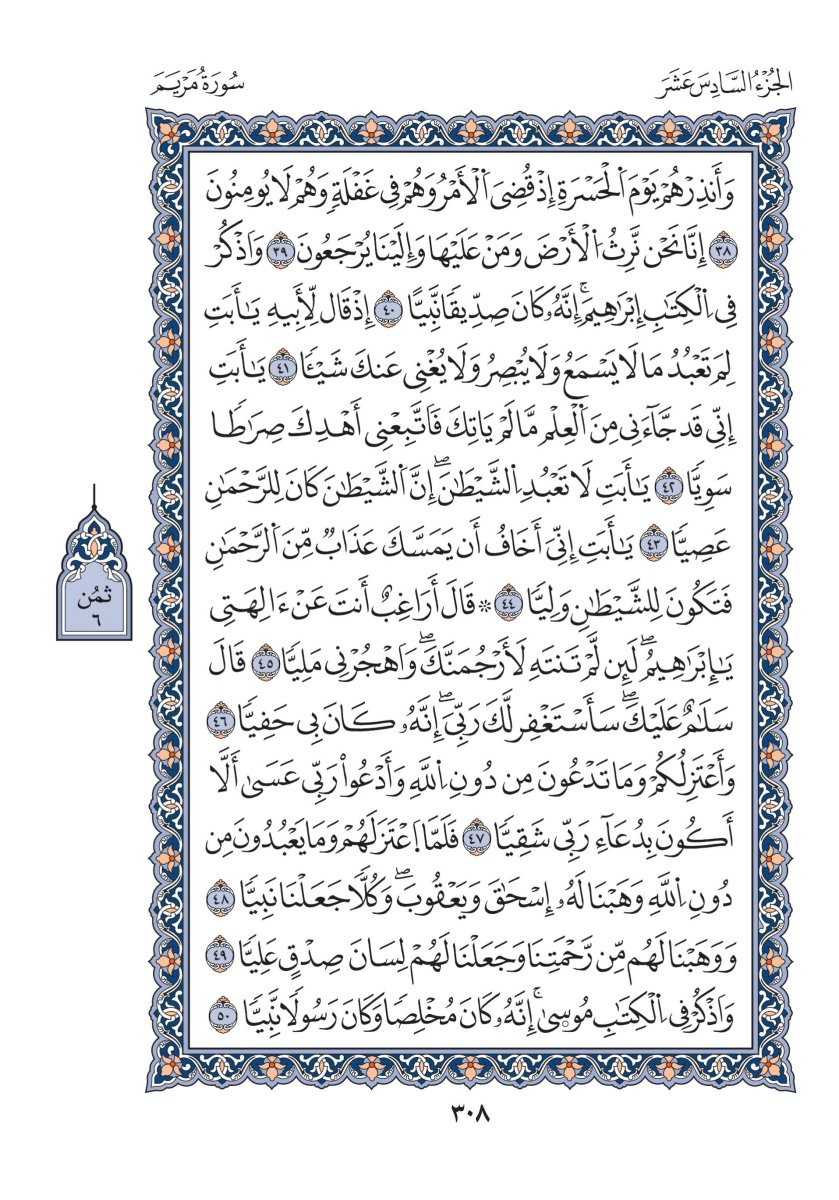 الجُزْءُ السَّادِسَ عَشَرَ
سُورَةُ مَرْيَمَ
وَأَنذِرْهُمْ يَوْمَ اَ۬لْحَسْرَةِ إِذْ قُضِيَ اَ۬لْأَمْرُ وَهُمْ فِي غَفْلَةٖ وَهُمْ لَا يُومِنُونَ
٣٨ إِنَّا نَحْن نَّرِثُ اُ۬لْأَرْضَ وَمَنْ عَلَيْهَا وَإِلَيْنَا يُرْجَعُونَ ٣٩ وَاَذْكُرْ
فِي اِ۬لْكِتَٰبِ إِبْرَٰهِيمَۚ إِنَّهُۥ كَانَ صِدِّيقٗا نَّبِيًّا ٤٠ إِذْ قَال لِّأَبِيهِ يَٰٓأَبَتِ
لِمَ تَعْبُدُ مَا لَا يَسْمَعُ وَلَا يُبْصِرُ وَلَا يُغْنِي عَنكَ شَيْـٔٗا ٤١ يَٰٓأَبَتِ
إِنِّي قَد جَّآءَنِي مِنَ اَ۬لْعِلْم مَّا لَمْ يَاتِكَ فَاَتَّبِعْنِي أَهْدِكَ صِرَٰطٗا
سَوِيّٗا ٤٢ يَٰٓأَبَتِ لَا تَعْبُدِ اِ۬لشَّيْطَٰنَۖ إِنَّ اَ۬لشَّيْطَٰنَ كَانَ لِلرَّحْمَٰنِ
عَصِيّٗا ٤٣ يَٰٓأَبَتِ إِنِّيَ أَخَافُ أَن يَمَسَّكَ عَذَابٞ مِّنَ اَ۬لرَّحْمَٰنِ
فَتَكُونَ لِلشَّيْطَٰنِ وَلِيّٗا ٤٤ ۞ قَالَ أَرَاغِبٌ أَنتَ عَنْ ءَالِهَتِي
يَٰٓإِبْرَٰهِيمُۖ لَئِن لَّمْ تَنتَهِ لَأَرْجُمَنَّكَۖ وَاَهْجُرْنِي مَلِيّٗا ٤٥ قَالَ
سَلَٰمٌ عَلَيْكَۖ سَأَسْتَغْفِر لَّكَ رَبِّيَۖ إِنَّهُۥ كَانَ بِي حَفِيّٗا ٤٦
وَأَعْتَزِلُكُمْ وَمَا تَدْعُونَ مِن دُونِ اِ۬للَّهِ وَأَدْعُواْ رَبِّي عَسَىٰٓ أَلَّآ
أَكُونَ بِدُعَآءِ رَبِّي شَقِيّٗا ٤٧ فَلَمَّا اَ۪عْتَزَلَهُمْ وَمَا يَعْبُدُونَ مِن
دُونِ اِ۬للَّهِ وَهَبْنَا لَهُۥٓ إِسْحَٰقَ وَيَعْقُوبَۖ وَكُلّٗا جَعَلْنَا نَبِيّٗا ٤٨
وَوَهَبْنَا لَهُم مِّن رَّحْمَتِنَا وَجَعَلْنَا لَهُمْ لِسَانَ صِدْقٍ عَلِيّٗا ٤٩
وَاَذْكُرْ فِي اِ۬لْكِتَٰبِ مُوسَىٰٓۚ إِنَّهُۥ كَانَ مُخْلِصٗا وَكَانَ رَسُولٗا نَّبِيّٗا ٥٠
ثُمُن
٦
٣٠٨